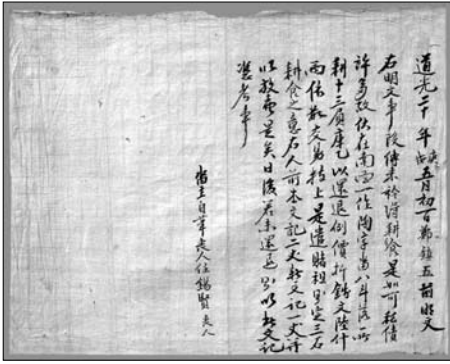 道光二十年庚子五月初日鄭鎭五前明文
右明文事段傳來衿得耕食是如可私債
許多故伏在南面一作陶字畓八斗落所
耕十三負庫乙以還退例價折錢文陸什
兩依數交易捧上是遣賭租則定三石
耕食之意右人前本文記二丈新文記一丈幷
以放賣是矣日後若未還退則以此文記
憑考事
畓主自筆喪人任錫賢 喪人